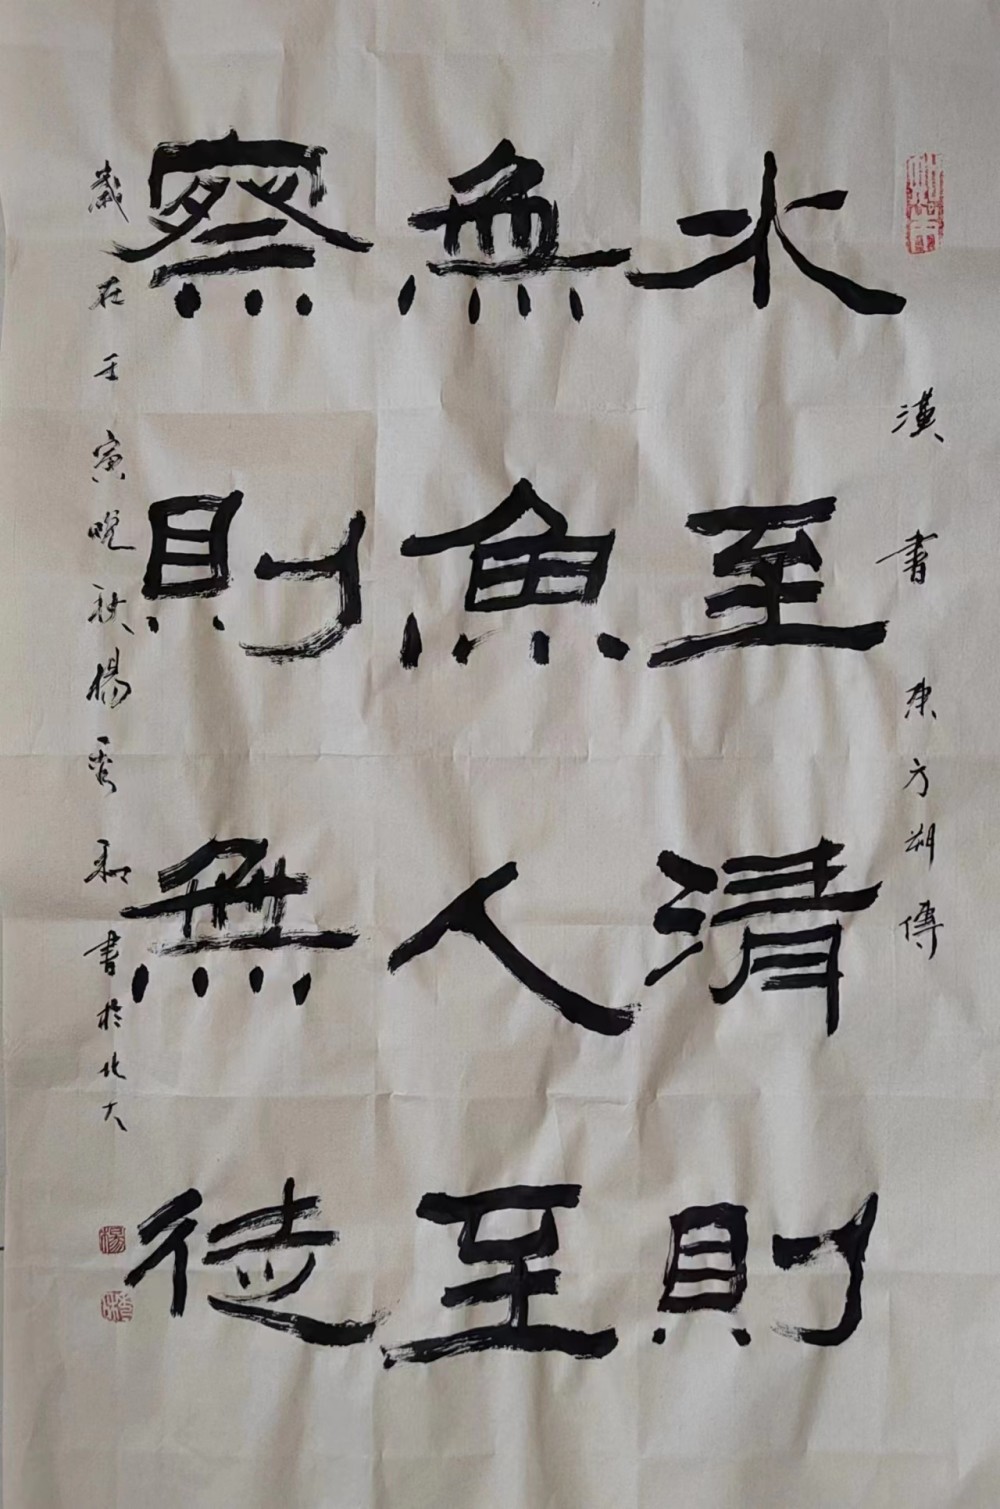 漢書東方朔傳
水至清則
無魚人至
察則無徒
歲在壬寅晚秋楊和書於北大
楊